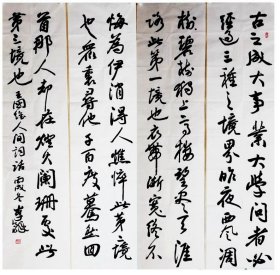 古之成大事業大學問者必
經過三種之境界昨夜西風凋
碧樹獨上高樓望盡天涯
路此第一境也衣帶漸寬終不
悔為伊消得人憔悴此第二境
也眾裏尋他千百度驀然回
首那人却在燈火闌珊處此
第三境也 王國維人間詞話